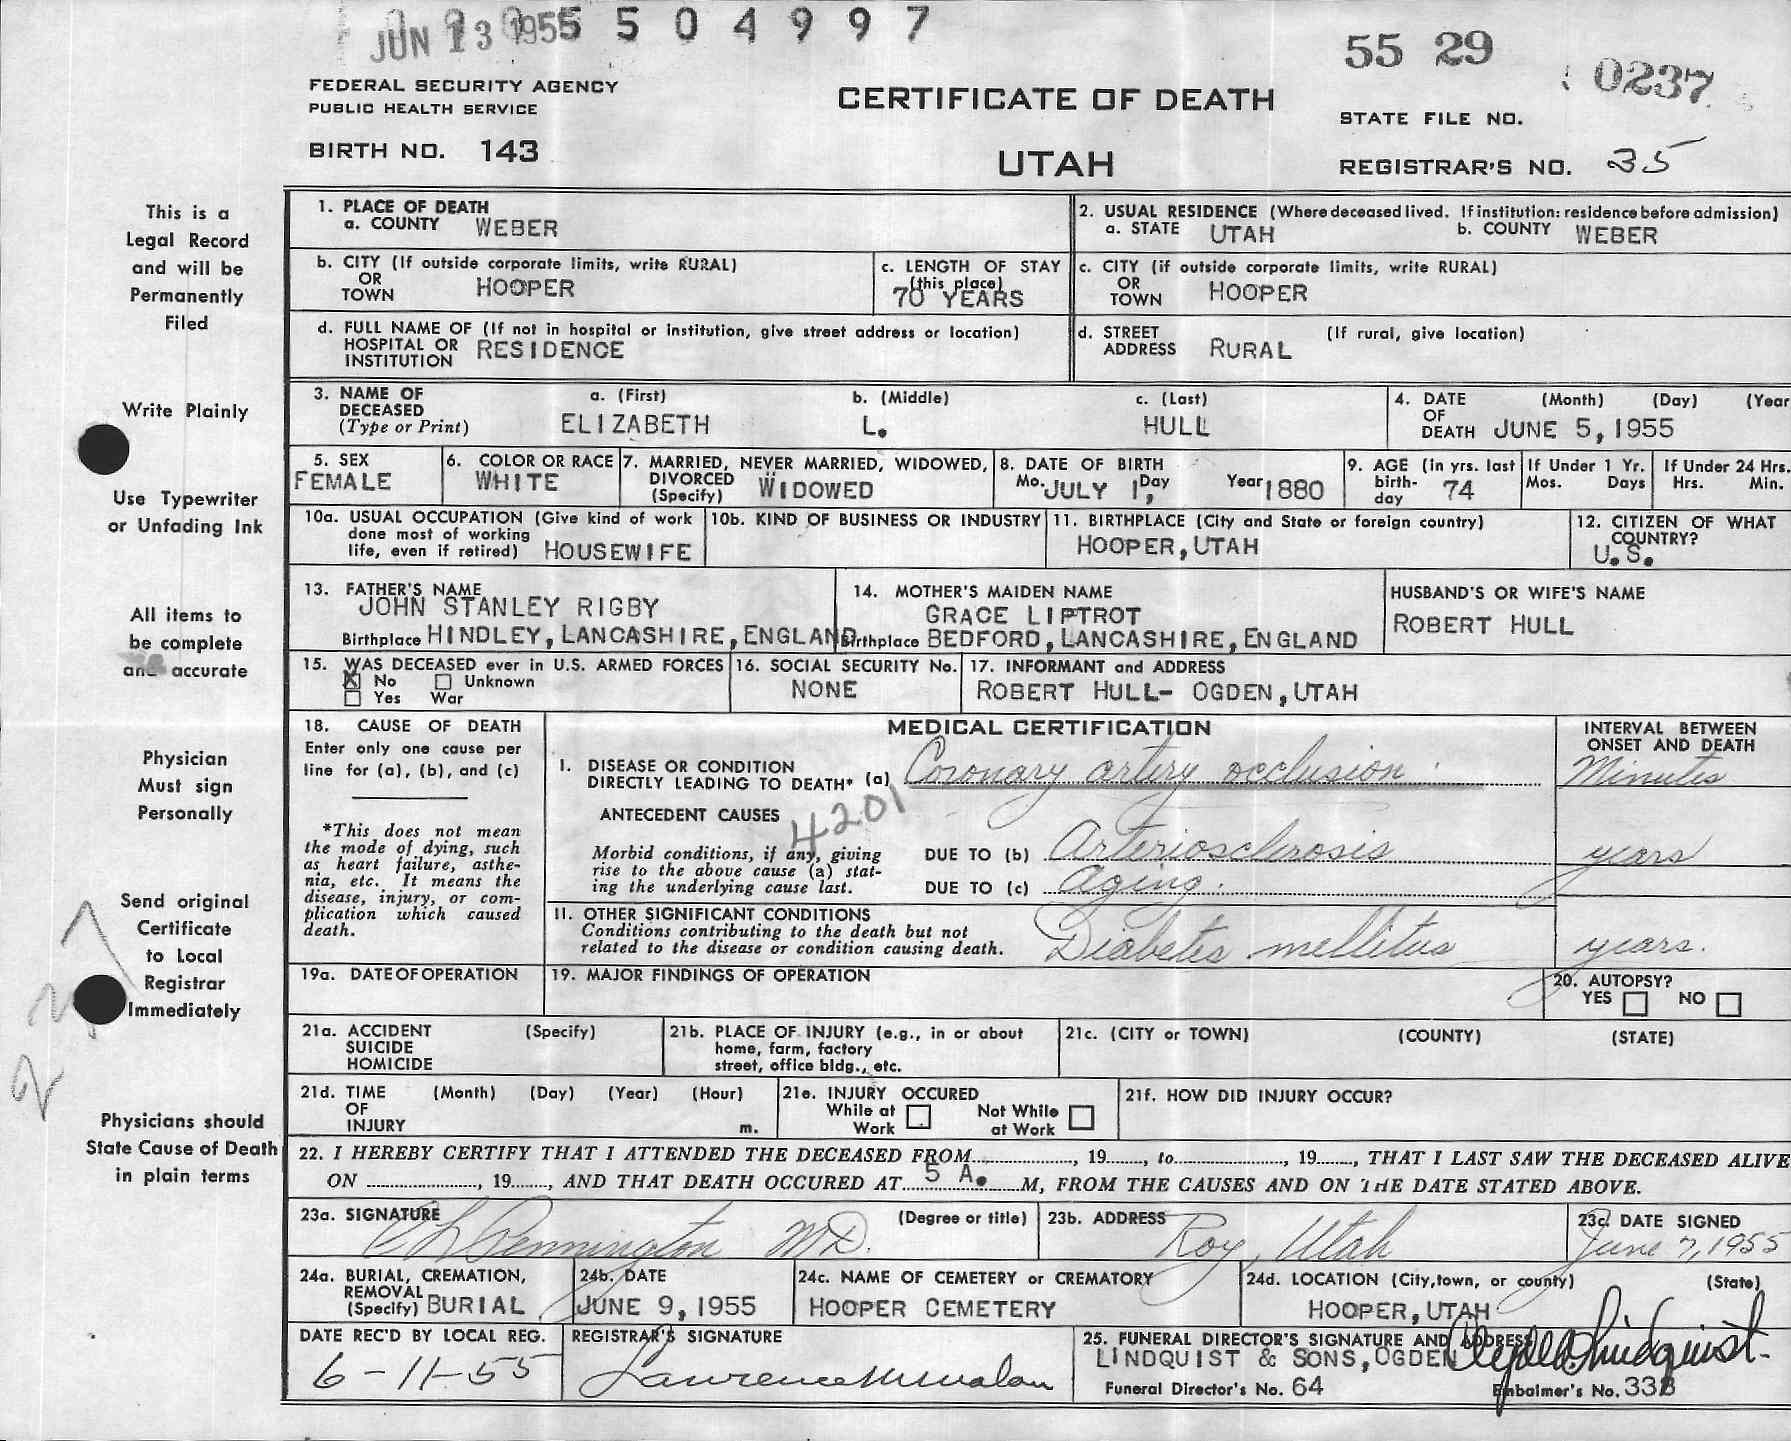 JUN 13 1955 5 5 0 4 9 9 7
55 29 0237
FEDERAL SECURITY AGENCY
PUBLIC HEALTH SERVICE
BIRTH NO. 143
CERTIFICATE OF DEATH
UTAH
STATE FILE NO.
REGISTRAR'S NO. 35
This is a
Legal Record
and will be
Permanently
Filed
Write Plainly
Use Typewriter
or Unfading Ink
All items to
be complete
and accurate
Physician
Must sign
Personally
Send original
Certificate
to Local
Registrar
Immediately
Physicians should
State Cause of Death
in plain terms
1. PLACE OF DEATH
a. COUNTY WEBER
2. USUAL RESIDENCE (Where deceased lived. If institution: residence before admission)
a. STATE UTAH b. COUNTY WEBER
b. CITY (If outside corporate limits, write RURAL)
OR
TOWN HOOPER
c. LENGTH OF STAY
(this place)
70 YEARS
c. CITY (if outside corporate limits, write RURAL)
OR
TOWN HOOPER
d. FULL NAME OF (If not in hospital or institution, give street address or location)
HOSPITAL OR
INSTITUTION RESIDENCE
d. STREET (If rural, give location)
ADDRESS RURAL
3. NAME OF a. (First) b. (Middle) c. (Last)
DECEASED
(Type or Print) ELIZABETH L. HULL
4. DATE (Month) (Day) (Year
OF
DEATH JUNE 5, 1955
5. SEX
FEMALE
6. COLOR OR RACE
WHITE
7. MARRIED, NEVER MARRIED, WIDOWED,
DIVORCED
(Specify) WIDOWED
8. DATE OF BIRTH
Mo. JULY 1, Day Year 1880
9. AGE (in yrs. last
birth-
day 74
If Under 1 Yr.
Mos. Days
If Under 24 Hrs.
Hrs. Min.
10a. USUAL OCCUPATION (Give kind of work
done most of working
life, even if retired) HOUSEWIFE
10b. KIND OF BUSINESS OR INDUSTRY
11. BIRTHPLACE (City and State or foreign country)
HOOPER, UTAH
12. CITIZEN OF WHAT
COUNTRY?
U.S.
13. FATHER'S NAME
JOHN STANLEY RIGBY
Birthplace HINDLEY, LANCASHIRE, ENGLAND
14. MOTHER'S MAIDEN NAME
GRACE LIPTROT
Birthplace BEDFORD, LANCASHIRE, ENGLAND
HUSBAND'S OR WIFE'S NAME
ROBERT HULL
15. WAS DECEASED ever in U.S. ARMED FORCES
X No Unknown
Yes War
16. SOCIAL SECURITY No.
NONE
17. INFORMANT and ADDRESS
ROBERT HULL- OGDEN, UTAH
18. CAUSE OF DEATH
Enter only one cause per
line for (a), (b), and (c)
*This does not mean
the mode of dying, such
as heart failure, asthe-
nia, etc. It means the
disease, injury, or com-
plication which caused
death.
MEDICAL CERTIFICATION
INTERVAL BETWEEN
ONSET AND DEATH
I. DISEASE OR CONDITION
DIRECTLY LEADING TO DEATH* (a) Coronary artery occlusion Minutes
ANTECEDENT CAUSES 4201
Morbid conditions, if any, giving
rise to the above cause (a) stat-
ing the underlying cause last.
DUE TO (b) Arteriosclerosis years
DUE TO (c) Aging.
II. OTHER SIGNIFICANT CONDITIONS
Conditions contributing to the death but not
related to the disease or condition causing death.
Diabetes mellitus years.
19a. DATE OF OPERATION
19. MAJOR FINDINGS OF OPERATION
20. AUTOPSY?
YES NO
21a. ACCIDENT (Specify)
SUICIDE
HOMICIDE
21b. PLACE OF INJURY (e.g., in or about
home, farm, factory
street, office bldg., etc.
21c. (CITY or TOWN) (COUNTY) (STATE)
21d. TIME (Month) (Day) (Year) (Hour)
OF
INJURY m.
21e. INJURY OCCURED
While at Not While
Work at Work
21f. HOW DID INJURY OCCUR?
22. I HEREBY CERTIFY THAT I ATTENDED THE DECEASED FROM............, 19......, to............, 19......, THAT I LAST SAW THE DECEASED ALIVE
ON ............, 19......, AND THAT DEATH OCCURED AT 5 A. M, FROM THE CAUSES AND ON THE DATE STATED ABOVE.
23a. SIGNATURE (Degree or title)
Pennington MD.
23b. ADDRESS
Roy, Utah
23c. DATE SIGNED
June 7, 1955
24a. BURIAL, CREMATION,
REMOVAL
(Specify) BURIAL
24b. DATE
JUNE 9, 1955
24c. NAME OF CEMETERY or CREMATORY
HOOPER CEMETERY
24d. LOCATION (City, town, or county) (State)
HOOPER, UTAH
DATE REC'D BY LOCAL REG.
6-11-55
REGISTRAR'S SIGNATURE
Lawrence
25. FUNERAL DIRECTOR'S SIGNATURE AND ADDRESS
LINDQUIST & SONS, OGDEN Clyde Lindquist.
Funeral Director's No. 64 Embalmer's No. 338